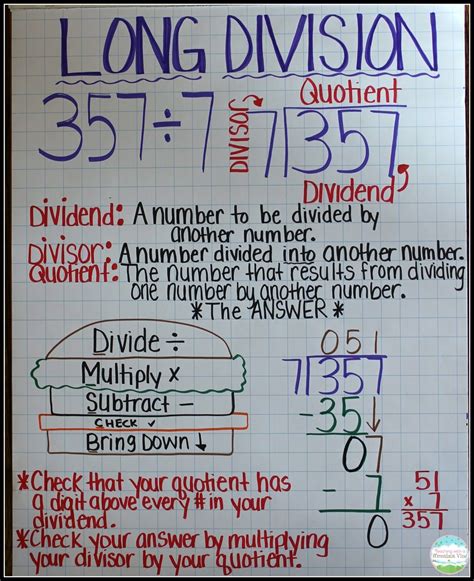 LONG DIVISION
357÷7
DIVISOR
Quotient
7 357
Dividend
Dividend: A number to be divided by
another number.
Divisor: A number divided into another number.
Quotient: The number that results from dividing
one number by another number.
*The ANSWER*
Divide ÷
Multiply x
Subtract -
CHECK ✓
Bring Down ↓
051
7 357
-35↓
07
-7
0
51
x 7
357
*Check that your quotient has
a digit above every # in your
dividend.
*Check your answer by multiplying
your divisor by your quotient.